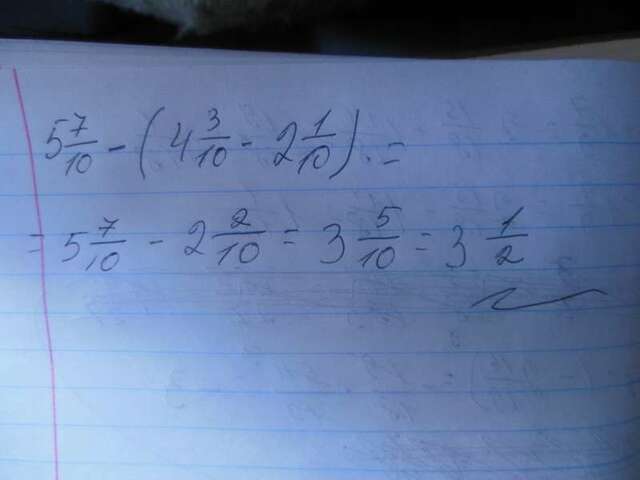 5 7/10 - (4 3/10 - 2 1/10) . =
= 5 7/10 - 2 2/10 = 3 5/10 = 3 1/2